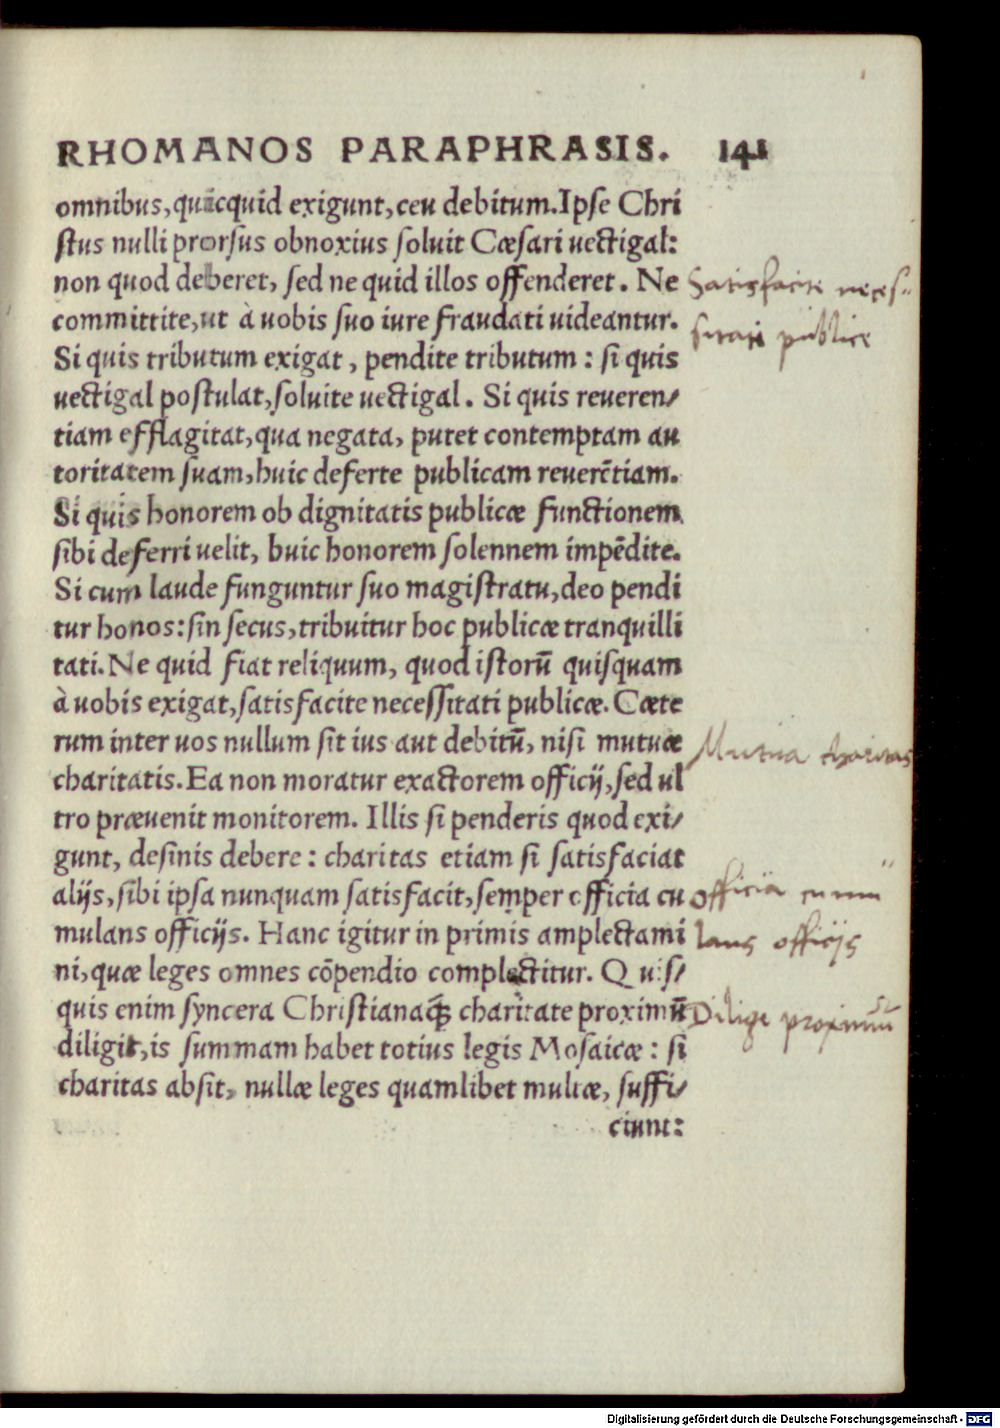 RHOMANOS PARAPHRASIS. 141
omnibus, quicquid exigunt, ceu debitum. Ipse Chri
stus nulli prorsus obnoxius soluit Cæsari uectigal:
non quod deberet, sed ne quid illos offenderet. Ne
committite, ut à uobis suo iure fraudati uideantur.
Si quis tributum exigat, pendite tributum: si quis
uectigal postulat, soluite uectigal. Si quis reueren/
tiam efflagitat, qua negata, putet contemptam au
toritatem suam, huic deferte publicam reuerẽtiam.
Si quis honorem ob dignitatis publicæ functionem
sibi deferri uelit, huic honorem solennem impẽdite.
Si cum laude funguntur suo magistratu, deo pendi
tur honos: sin secus, tribuitur hoc publicæ tranquilli
tati. Ne quid fiat reliquum, quod istorũ quisquam
à uobis exigat, satisfacite necessitati publicæ. Cæte
rum inter uos nullum sit ius aut debitũ, nisi mutuæ
charitatis. Ea non moratur exactorem officij, sed ul
tro præuenit monitorem. Illis si penderis quod exi/
gunt, desinis debere: charitas etiam si satisfaciat
alijs, sibi ipsa nunquam satisfacit, semper officia cu
mulans officijs. Hanc igitur in primis amplectami
ni, quæ leges omnes cõpendio complectitur. Quis/
quis enim syncera Christianaq́; charitate proximũ
diligit, is summam habet totius legis Mosaicæ: si
charitas absit, nullæ leges quamlibet multæ, suffi/
ciunt:
Satisfacite neces-
sitati publice
Mutua charitas
officia cumu
lans officijs
Dilige proximũ
Digitalisierung gefördert durch die Deutsche Forschungsgemeinschaft - DFG